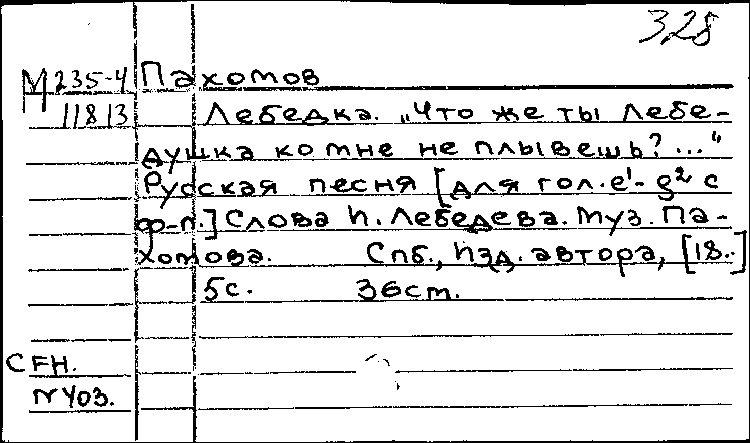 328
М 235-4 Пахомов
11813 Лебедка. „Что же ты лебе-
душка ко мне не плывешь?..."
Русская песня [для гол. e¹- g² с
ф-п.] Слова И. Лебедева. Муз. Па-
хомова. Спб., Изд. автора, [18..]
5с. 36см.
СFН.